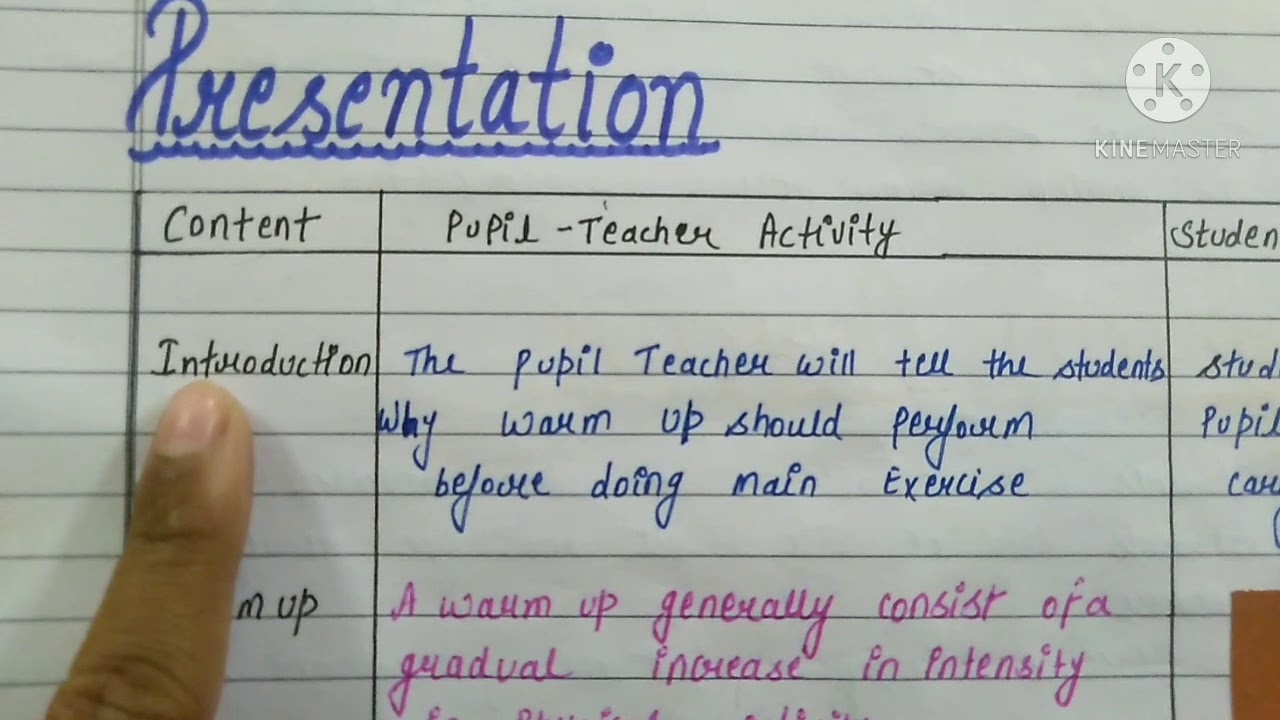 Presentation
KINEMASTER
Content Pupil-Teacher Activity
Introduction The Pupil Teacher will tell the students
Why warm up should perform
before doing main Exercise
up A warm up generally consist of a
gradual increase in intensity